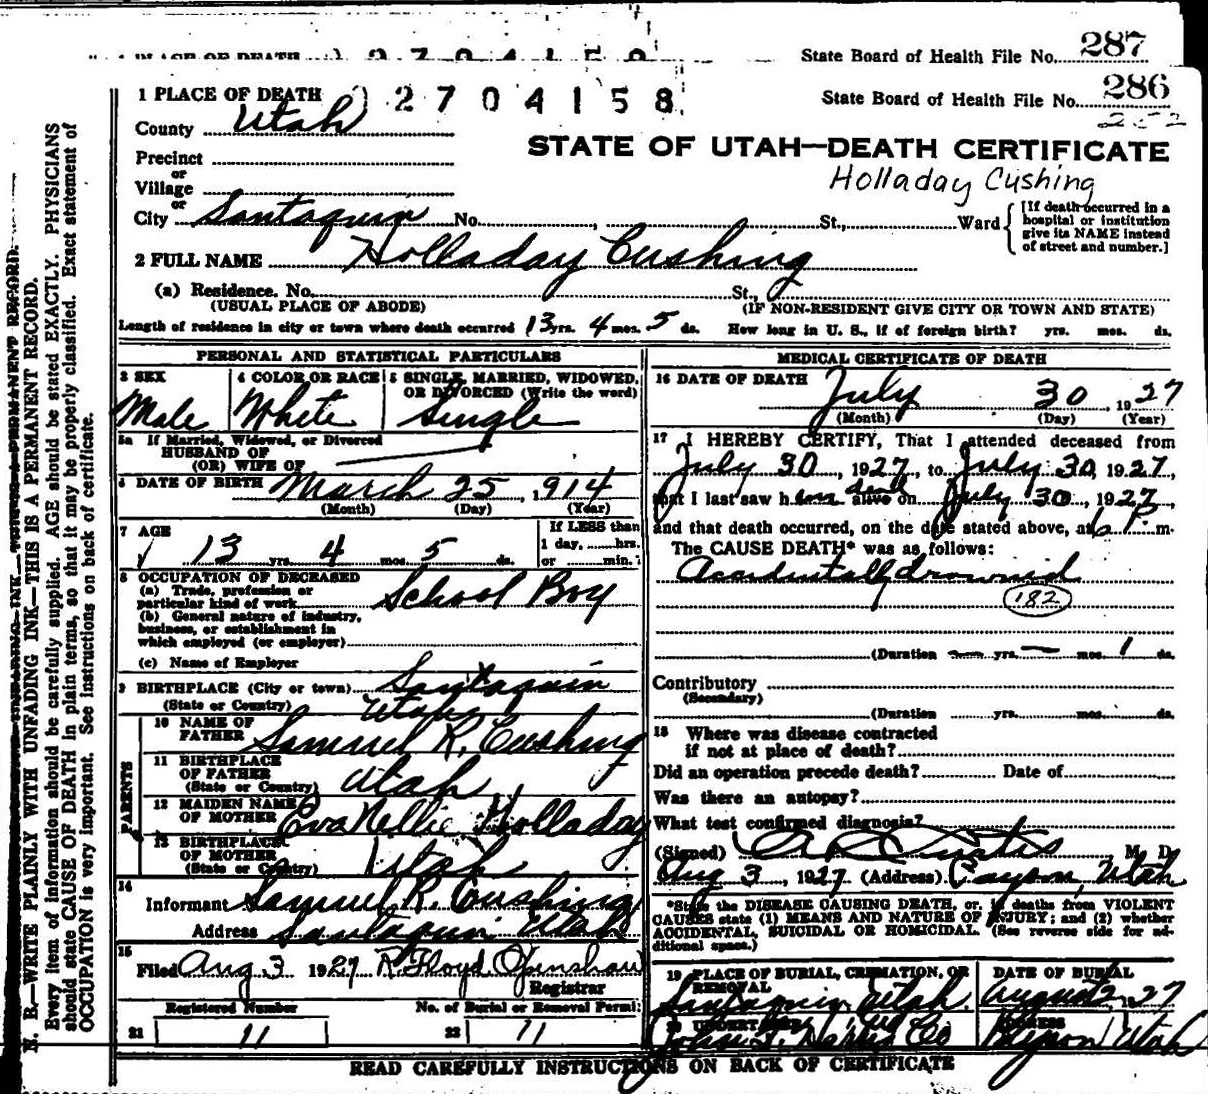 State Board of Health File No. 287
1 PLACE OF DEATH 2704158
State Board of Health File No. 286
252
County Utah
STATE OF UTAH—DEATH CERTIFICATE
Precinct
or
Holladay Cushing
Village
or
City Santaquin No. , St., Ward
[If death occurred in a hospital or institution give its NAME instead of street and number.]
2 FULL NAME Holladay Cushing
(a) Residence. No. St.,
(USUAL PLACE OF ABODE) (IF NON-RESIDENT GIVE CITY OR TOWN AND STATE)
Length of residence in city or town where death occurred 13 yrs. 4 mos. 5 ds. How long in U. S., if of foreign birth? yrs. mos. ds.
PERSONAL AND STATISTICAL PARTICULARS
3 SEX Male
4 COLOR OR RACE White
5 SINGLE, MARRIED, WIDOWED, OR DIVORCED (Write the word) Single
5a If Married, Widowed, or Divorced
HUSBAND OF
(OR) WIFE OF
6 DATE OF BIRTH March 25, 1914
(Month) (Day) (Year)
7 AGE
13 yrs. 4 mos. 5 ds.
If LESS than
1 day, hrs.
or min.
8 OCCUPATION OF DECEASED
(a) Trade, profession or
particular kind of work School Boy
(b) General nature of industry,
business, or establishment in
which employed (or employer)
(c) Name of Employer
9 BIRTHPLACE (City or town) Santaquin
(State or Country) Utah
PARENTS
10 NAME OF
FATHER Samuel R. Cushing
11 BIRTHPLACE
OF FATHER
(State or Country) Utah
12 MAIDEN NAME
OF MOTHER Eva Nellie Holladay
13 BIRTHPLACE
OF MOTHER
(State or Country) Utah
14
Informant Samuel R. Cushing
Address Santaquin Utah
15
Filed Aug 3 1927 R. Floyd Openshaw
Registrar
Registered Number No. of Burial or Removal Permit
21 11 22 11
MEDICAL CERTIFICATE OF DEATH
16 DATE OF DEATH July 30, 1927
(Month) (Day) (Year)
17 I HEREBY CERTIFY, That I attended deceased from
July 30, 1927, to July 30, 1927,
that I last saw him dead alive on July 30, 1927
and that death occurred, on the date stated above, at 6 P. m.
The CAUSE DEATH* was as follows:
Accidentally drowned
182
(Duration yrs. — mos. 1 ds.
Contributory
(Secondary)
(Duration yrs. mos. ds.
18 Where was disease contracted
if not at place of death?
Did an operation precede death? Date of
Was there an autopsy?
What test confirmed diagnosis?
(Signed) A R Curtis M. D.
Aug 3, 1927 (Address) Payson, Utah
*State the DISEASE CAUSING DEATH, or, in deaths from VIOLENT
CAUSES state (1) MEANS AND NATURE OF INJURY; and (2) whether
ACCIDENTAL, SUICIDAL OR HOMICIDAL. (See reverse side for ad-
ditional space.)
19 PLACE OF BURIAL, CREMATION, OR
REMOVAL
Santaquin Utah
DATE OF BURIAL
August 2, 1927
20 UNDERTAKER
John Co
ADDRESS
Payson Utah
READ CAREFULLY INSTRUCTIONS ON BACK OF CERTIFICATE
N. B.—WRITE PLAINLY WITH UNFADING INK—THIS IS A PERMANENT RECORD.
Every item of information should be carefully supplied. AGE should be stated EXACTLY. PHYSICIANS
should state CAUSE OF DEATH in plain terms, so that it may be properly classified. Exact statement of
OCCUPATION is very important. See instructions on back of certificate.